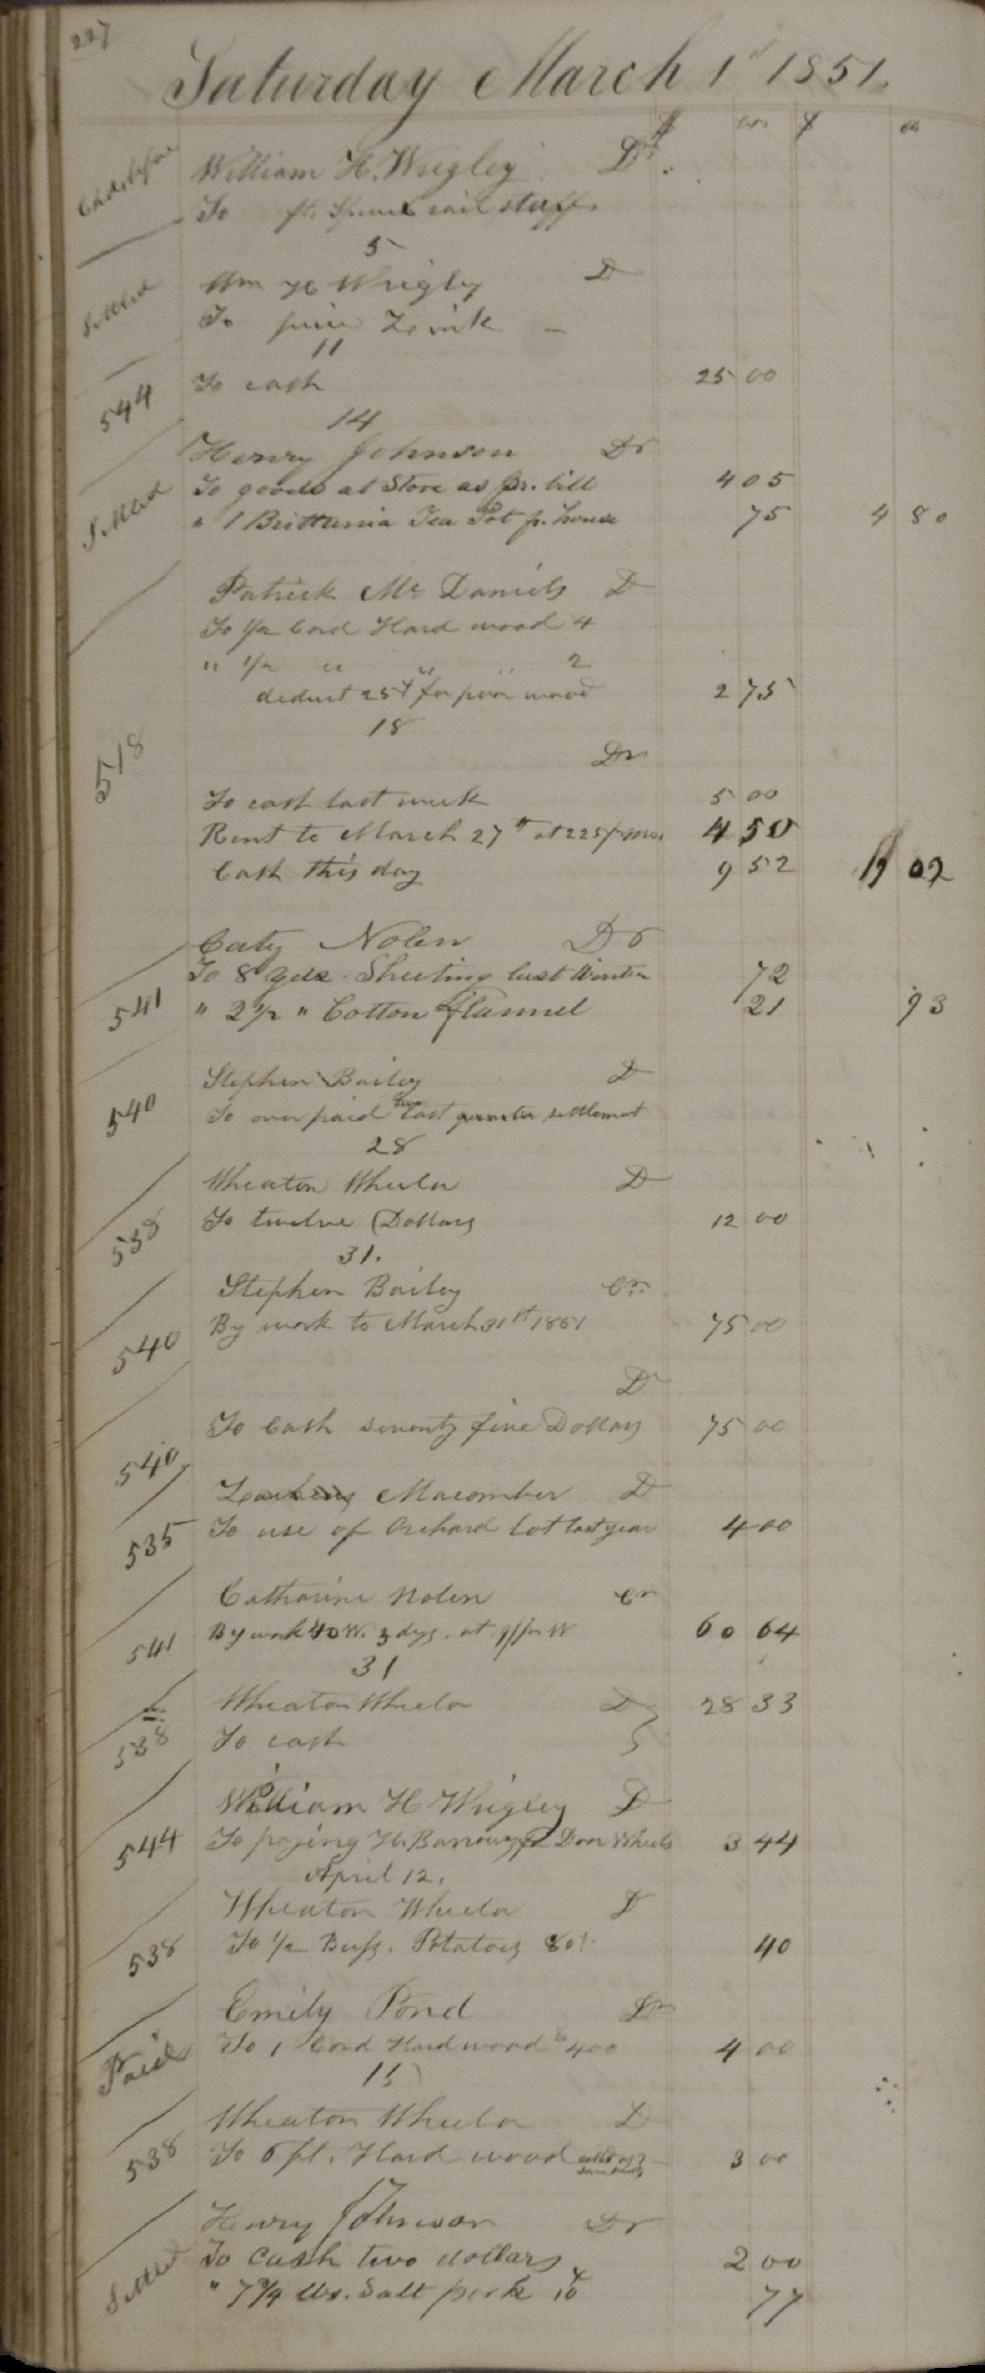 227
Saturday March 1st 1851.
$ cts $ cts
William H. Wrigley Dr.
To ft. Spruce rail stuff
5
Settled Wm H Wrigley D
To piece Zink —
11
544 To cash 25 00
14
Henry Johnson Dr
To goods at Store as pr. bill 4 05
Settled " 1 Brittania Tea Pot p. house 75 4 80
Patrick Mc Daniels D
To 1/2 Cord Hard wood 4
" 1/2 " " " 2
deduct 25 for poor wood 2 75
18
518 Dr
To cash last week 5 00
Rent to March 27th at 225 pr mo. 4 50
Cash this day 9 52 19 02
Caty Nolen Dr
To 8 yds. Sheeting last Winter 72
541 " 2 1/2 " Cotton flannel 21 93
Stephen Bailey D
540 To over paid last quarter settlement
28
Wheaton Wheelor D
538 To twelve Dollars 12 00
31.
Stephen Bailey Cr.
540 By work to March 31st 1851 75 00
D
540 To Cash seventy five Dollars 75 00
Macomber D
535 To use of Orchard lot last year 4 00
Catharine Nolen Cr
541 By work 40 W. 3 dys. at 9/ pr W 60 64
31
Wheaton Wheelor D 28 33
538 To cash
William H Wrigley D
544 To paying H. Barrows for Wheels 3 44
April 12.
Wheaton Wheelor D
538 To 1/2 Bush. Potatoes 80 40
Emily Pond Dr
Paid To 1 Cord Hard wood 400 4 00
15
Wheaton Wheelor D
538 To 6 ft. Hard wood 3 00
Henry Johnson Dr
Settled To Cash two dollars 2 00
" 7 3/4 lbs. Salt pork 10 77